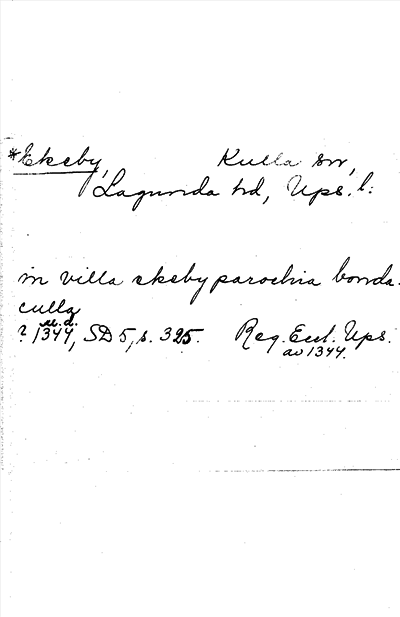 *Ekeby, Kulla sn,
Lagunda hd, Ups. l:
in villa ekeby parochia bonda-
culla
? 1344, u.d. SD 5, s. 325. Reg. Eccl. Ups.
av 1344.